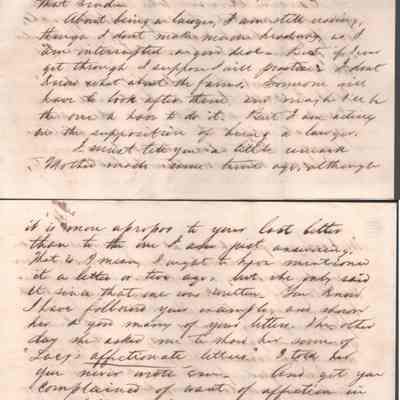 that
About being a lawyer, I am still reading,
though I dont make much headway, as I
am interrupted a good deal. But if I ever
get through I suppose I will practice. I dont
know what about the farms. Someone will
have to look after them, and maybe I'll be
the one to have to do it. But I am acting
on the supposition of being a lawyer.
I must tell you a little remark
Mother made some time ago, although
it is more apropos to your last letter
than to the one I am just answering.
That is, I mean, I ought to have mentioned
it a letter or two ago, but she only said
it since that one was written. You know
I have followed your example, and shown
her a good many of your letters. The other
day she asked me to show her some of
Lucy's affectionate letters. I told her
you never wrote any. And yet you
complained of want of affection in